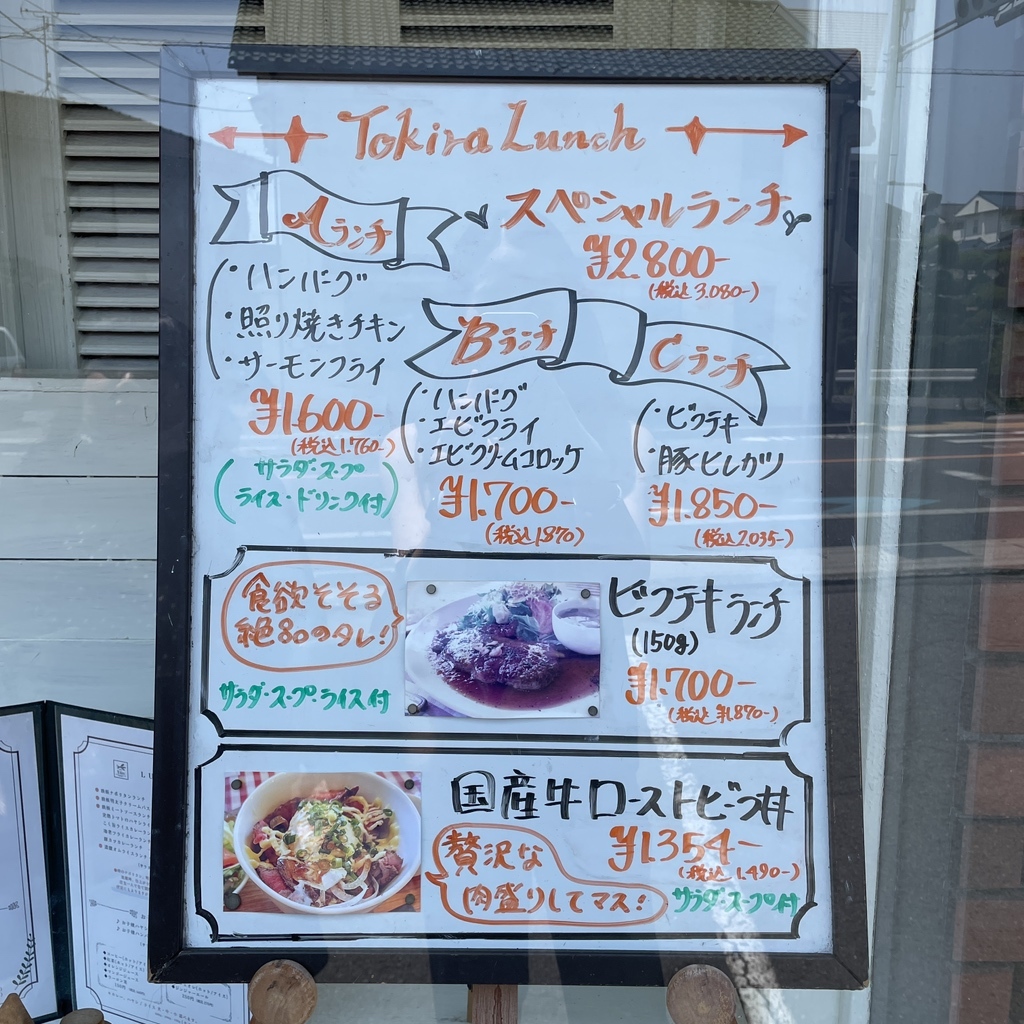 Tokira Lunch
スペシャルランチ
¥2800-
(税込3,080-)
Aランチ
・ハンバーグ
・照り焼きチキン
・サーモンフライ
¥1.600-
(税込1.760-)
(サラダ・スープ
ライス・ドリンク付)
Bランチ
・ハンバーグ
・エビフライ
・エビクリームコロッケ
¥1.700-
(税込1,870)
Cランチ
・ビフテキ
・豚ヒレカツ
¥1.850-
(税込2.035-)
食欲そそる
絶品のタレ!
サラダ・スープ・ライス付
ビフテキランチ
(150g)
¥1.700-
(税込¥1,870-)
国産牛ローストビーフ丼
¥1354-
(税込1,490-)
贅沢な
肉盛りしてマス!
サラダ・スープ付